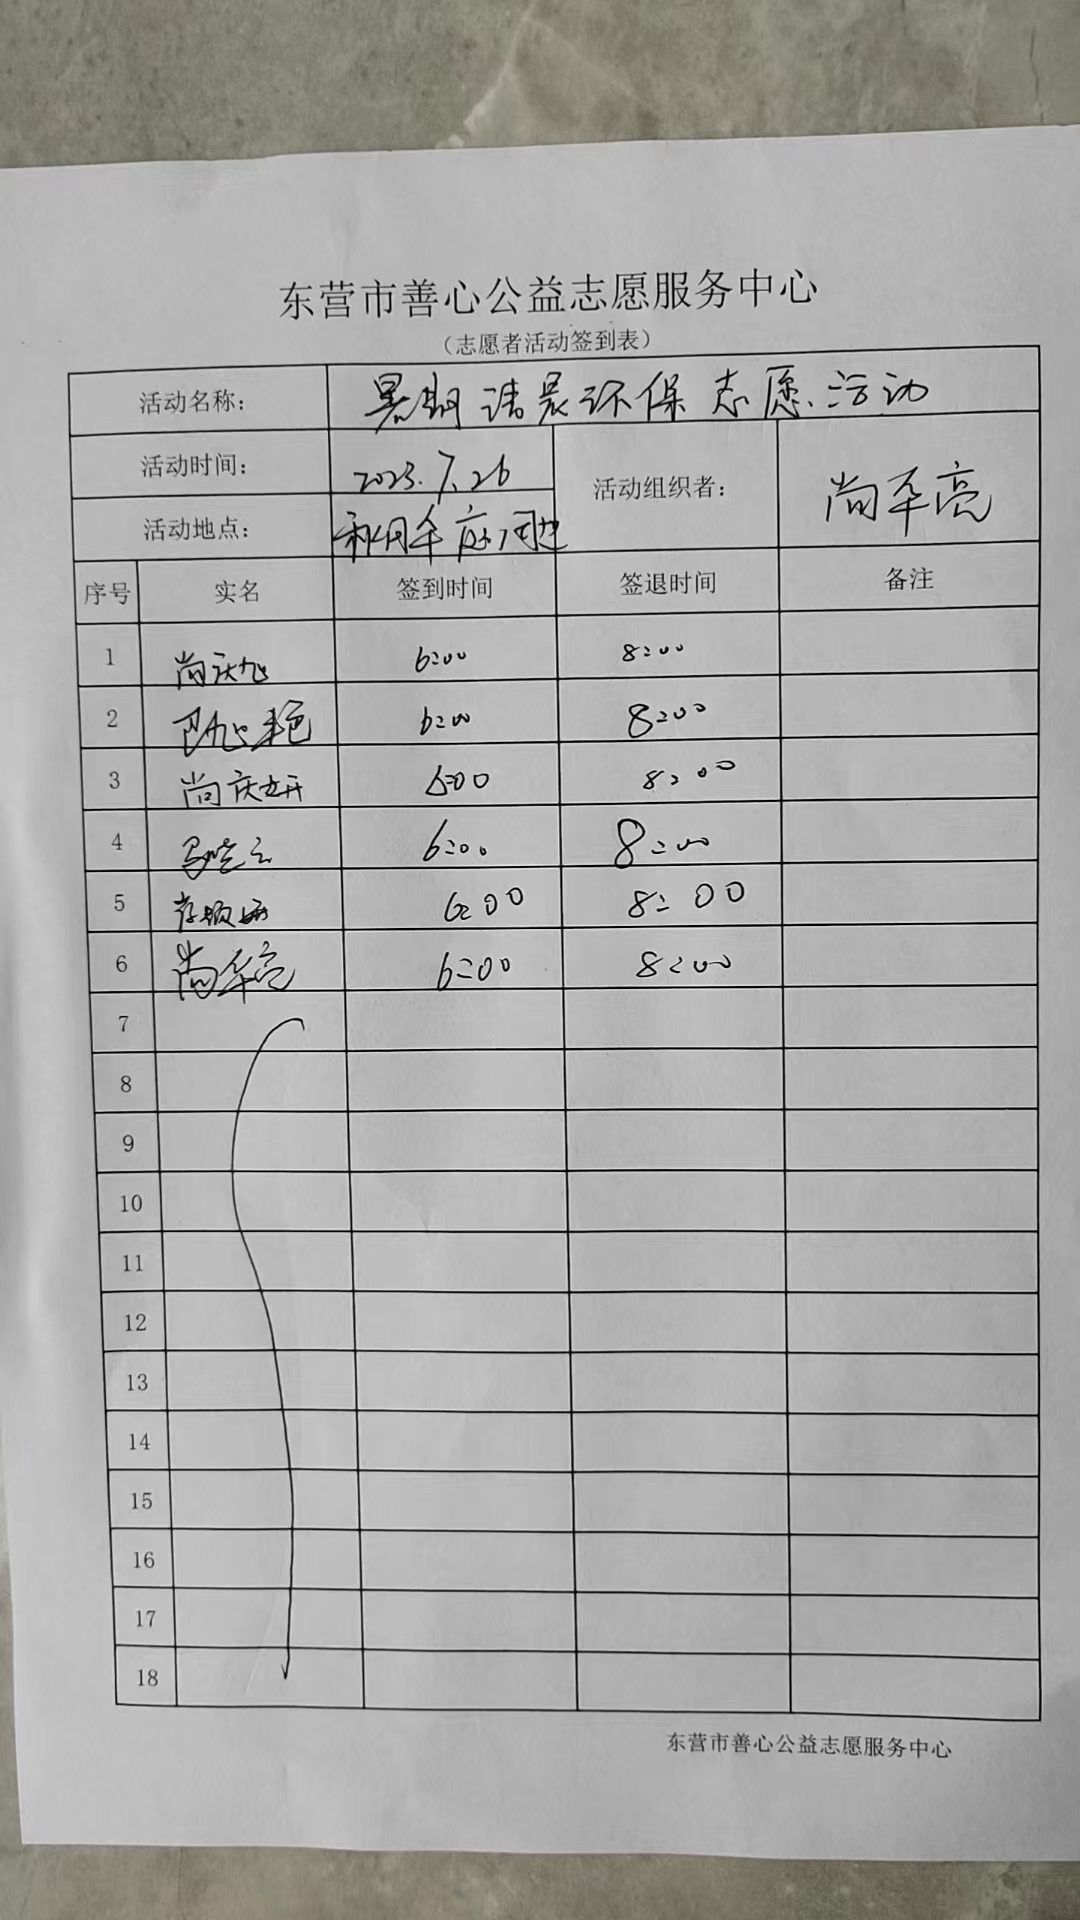 东营市善心公益志愿服务中心
（志愿者活动签到表）
活动名称： 暑期清晨环保志愿活动
活动时间： 2023.7.26 活动组织者： 尚华亮
活动地点： 周边
序号 实名 签到时间 签退时间 备注
1 尚庆旭 6:00 8:00
2 6:00 8:00
3 尚庆妍 6:00 8:00
4 马晓云 6:00 8:00
5 6:00 8:00
6 尚华亮 6:00 8:00
7
8
9
10
11
12
13
14
15
16
17
18
东营市善心公益志愿服务中心